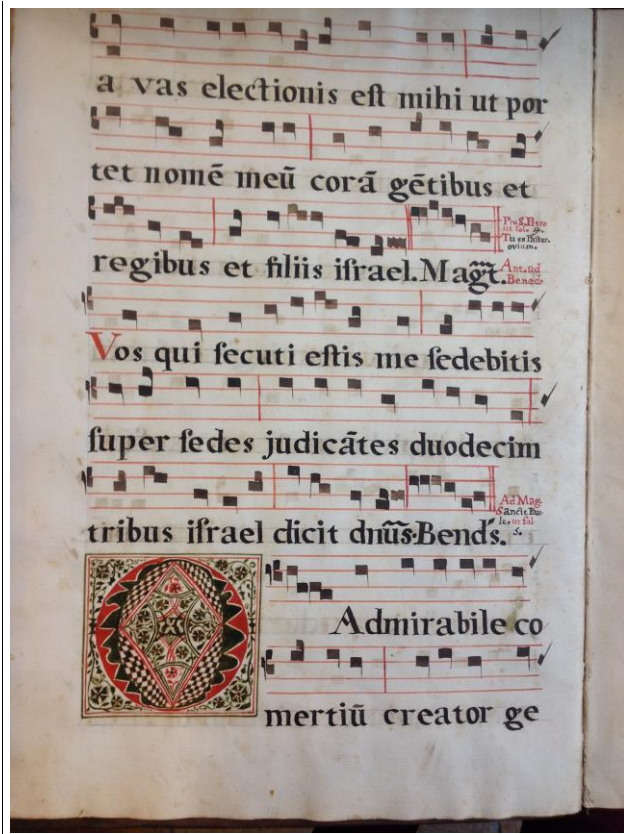 a vas electionis eſt mihi ut por
tet nomẽ meũ corã gẽtibus et
Pro S. Petro
Tu es Paſtor
ovium.
regibus et filiis iſrael. Magt̃.
Ant. ad
Bened.
Vos qui ſecuti eſtis me ſedebitis
ſuper ſedes judicãtes duodecim
Ad Mag.
Sancte Pau
le. ut ſol
tribus iſrael dicit dnũs. Bends.
O
Admirabile co
mertiũ creator ge